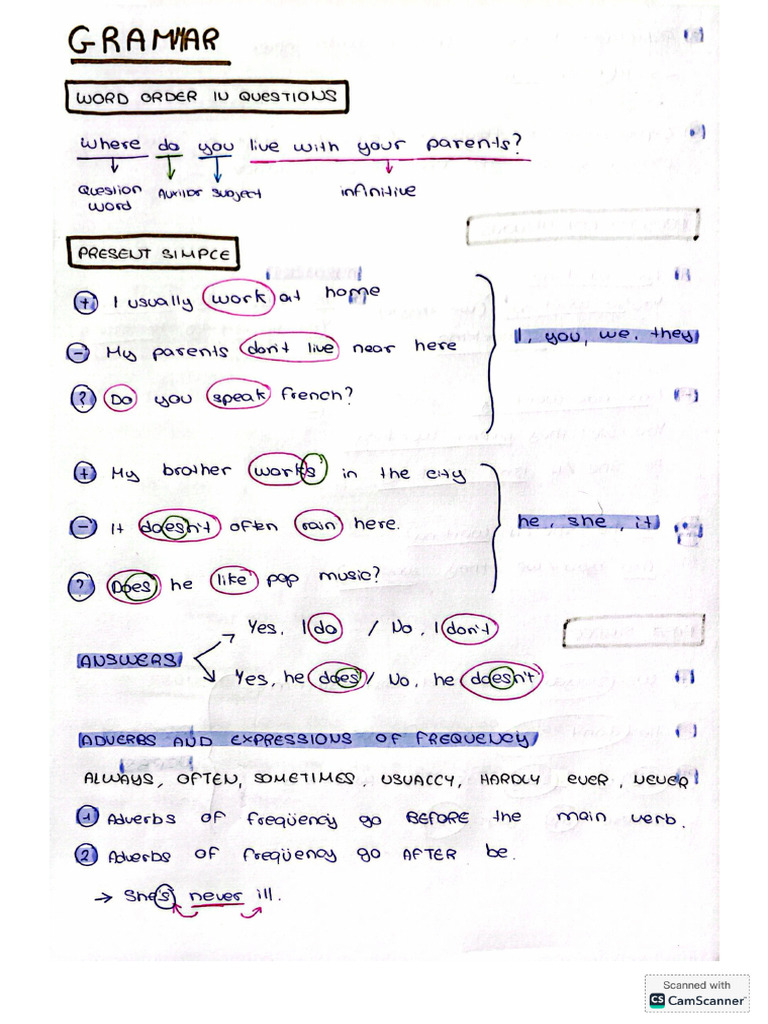 GRAMMAR
WORD ORDER IN QUESTIONS
Where do you live with your parents?
Question word
Auxiliar
Subject
infinitive
PRESENT SIMPLE
+ I usually work at home
- My parents don't live near here
? Do you speak french?
I, you, we, they
+ My brother works in the city
- It doesn't often rain here.
? Does he like pop music?
he, she, it
ANSWERS
Yes, I do / No, I don't
Yes, he does / No, he doesn't
ADVERBS AND EXPRESSIONS OF FREQUENCY
ALWAYS, OFTEN, SOMETIMES, USUALLY, HARDLY EVER, NEVER
1 Adverbs of freqüency go BEFORE the main verb.
2 Adverbs of freqüency go AFTER be.
→ She's never ill.
Scanned with
CS CamScanner